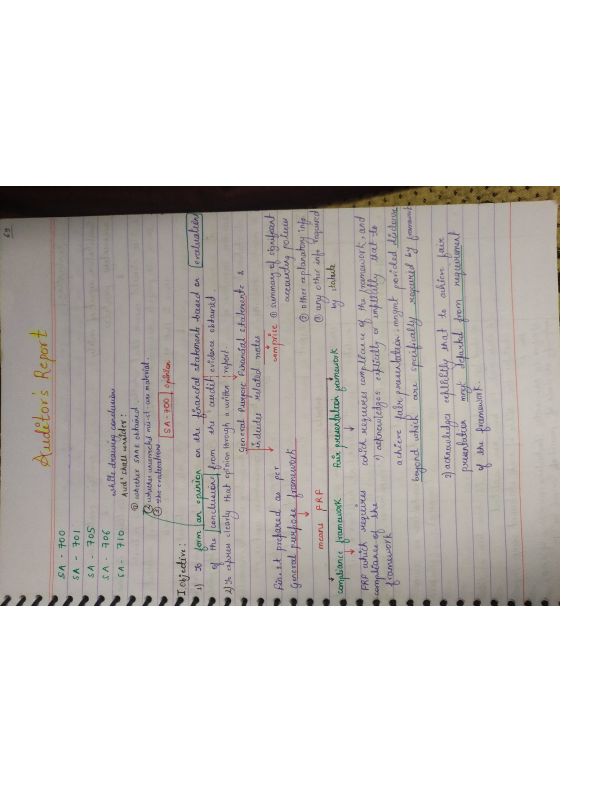 69
Auditor's Report
SA - 700
SA - 701
SA - 705
SA - 706
SA - 710
while drawing conclusion
Aud' shall consider:
① whether SAAE obtained
② whether uncorrected mis-st. are material.
③ the evaluations
SA-700 Opinion
I objective:
1) To form an opinion on the financial statement based on evaluation
of the conclusions from the audit evidence obtained.
2) To express clearly that opinion through a written report.
General Purpose Financial statements &
includes related notes
comprise ① summary of significant
accounting policies
② other explanatory info.
③ any other info required
by statute
Fin. st prepared as per
General purpose framework
means FRF
compliance framework
FRF which requires
compliance of the
framework
Fair presentation framework
which requires compliance of the framework, and
1) acknowledges explicitly or implicitly that to
achieve fair presentation, mngmt provided disclosure
beyond which are specifically required by framework
2) acknowledges explicitly that to achieve fair
presentation mngt departed from requirement
of the framework.